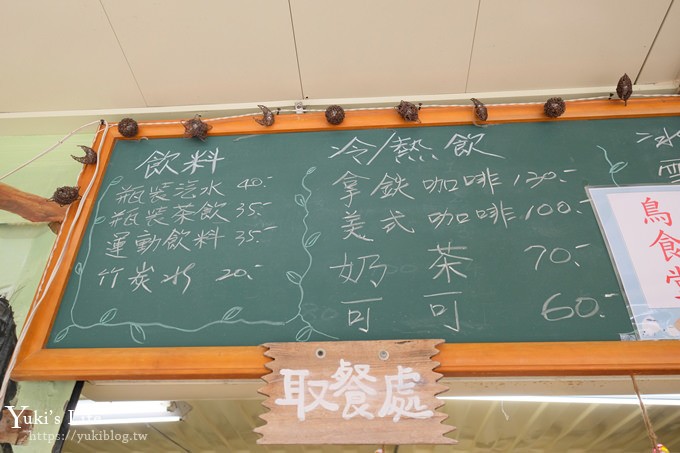 飲料
瓶裝汽水 40.-
瓶裝茶飲 35.-
運動飲料 35.-
竹炭水 20.-
冷/熱飲
拿鐵咖啡 120.-
美式咖啡 100.-
奶茶 70.-
可可 60.-
冰
鳥食堂
取餐處
Yuki's Life
https://yukiblog.tw